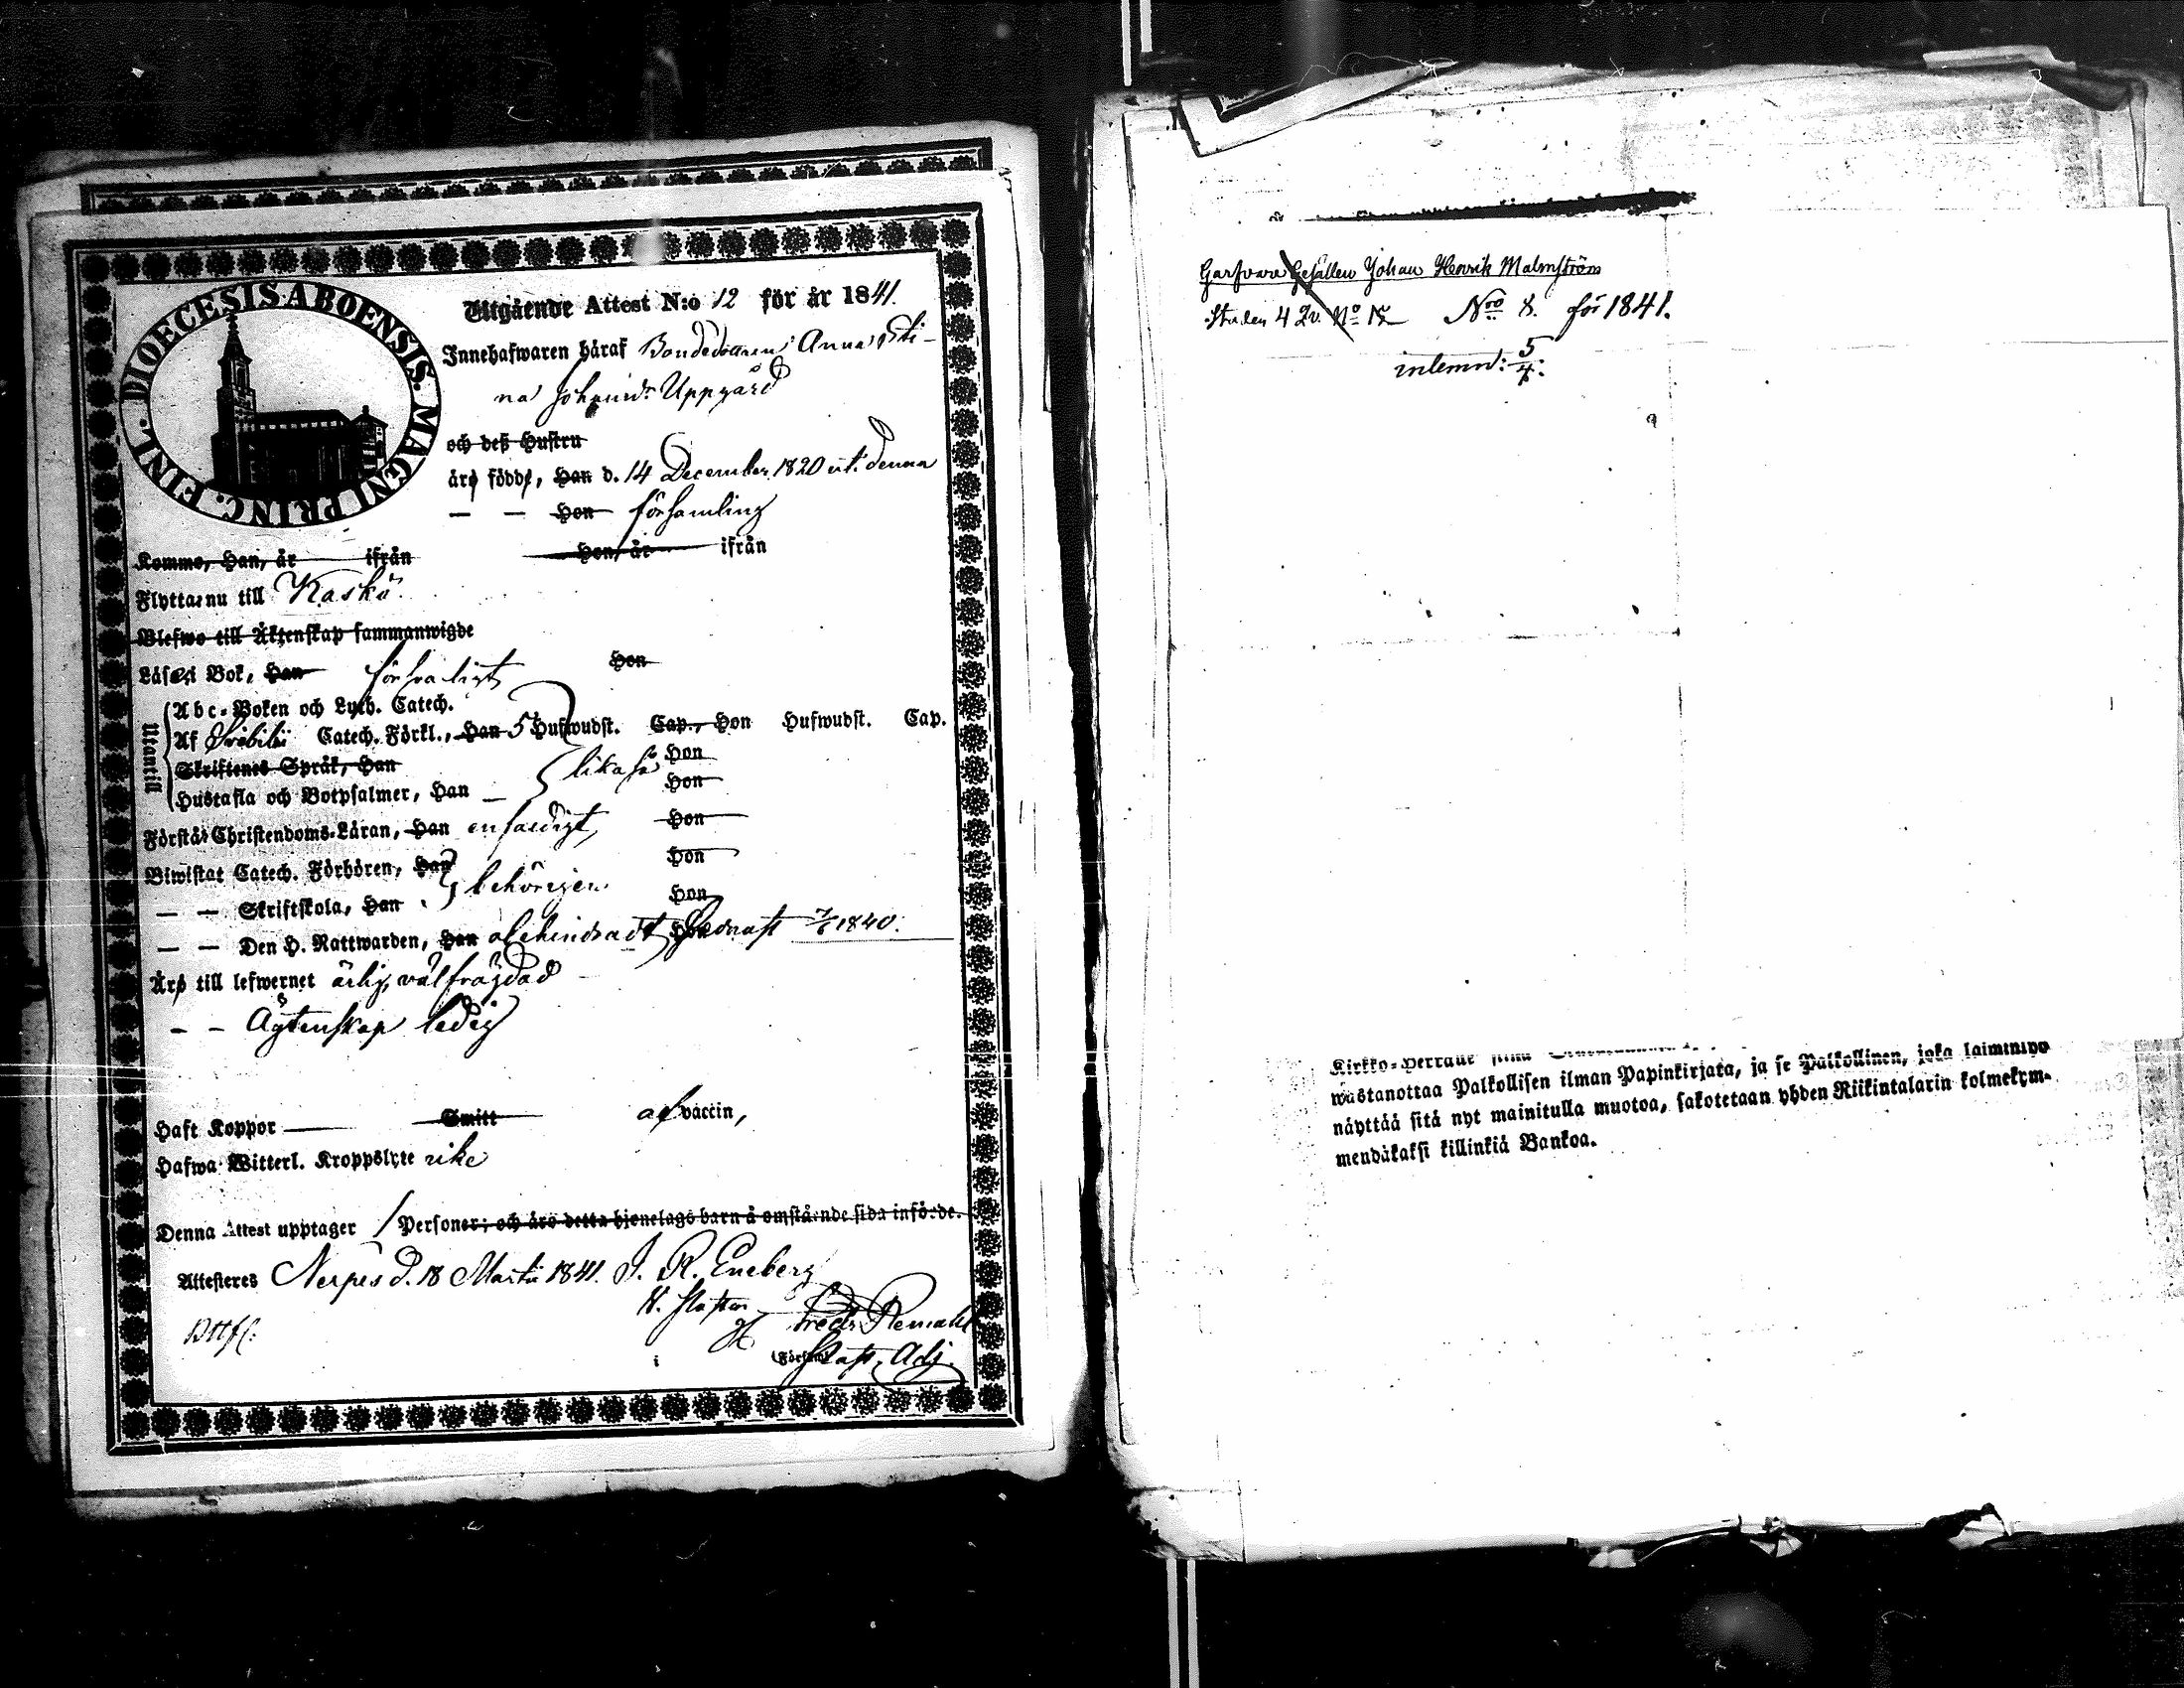 DIOECESIS ABOENSIS. MAGNI PRINC. FINL.
Utgående Attest N:o 12 för år 1841.
Innehafwaren håraf Bondedottren Anna Sti-
na Johansdr Uppgård
och deß Hustru
äro födde, Han d. 14 December 1820 uti denna
— — Hon församling
Komme, Han, år ifrån Hon, år ifrån
Flytta nu till Kaskö.
Blefwo till Äktenskap sammanwigde
Läser i Bok, Han försvarligt Hon
Utantill
Abc-Boken och Luth. Catech.
Af Svebilii Catech. Förkl., Han 5 Hufwudst. Cap., Hon Hufwudst. Cap.
Skriftenes Språk, Han likaså Hon
Hustafla och Botpsalmer, Han — Hon
Förstå Christendoms-Läran, Han enfaldigt, Hon
Biwistat Catech. Förhören, Han behörigen Hon
— — Skriftskola, Han Hon
— — Den H. Nattwarden, Han obehindradt, Hon 1840.
Äro till lefwernet ärlig, välfrägdad
— — Ägtenskap ledig
Haft Koppor Smitt af vaccin,
Hafwa Witterl. Kroppslyte icke
Denna Attest upptager 1 Personer; och äro detta hjonelags barn å omstående sida införde.
Attesteras Nerpes d. 18 Martii 1841. J. R. Eneberg
Fredr. Remahl
i (Församl.) Past. Adj.
Garfvare Gesällen Johan Henrik Malmström
Staden 4 Qv. No Nro 8. för 1841.
inlemn: 5/4:
Kirkko-Herralle
wastanottaa Palkollisen ilman Papinkirjata, ja se Palkollinen, joka laiminlyö
näyttää sitä nyt mainitulla muotoa, sakotetaan yhden Riikintalarin kolmekym-
mendäkaksi killinkiä Bankoa.